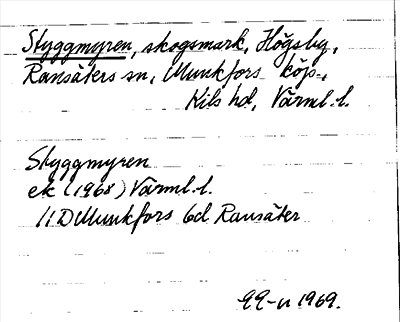 Styggmyren, skogsmark, Högsby,
Ransäters sn, Munkfors köp.,
Kils hd, Värml. l.
Styggmyren
ek (1968) Värml. l.
11D Munkfors 6d Ransäter
1969.